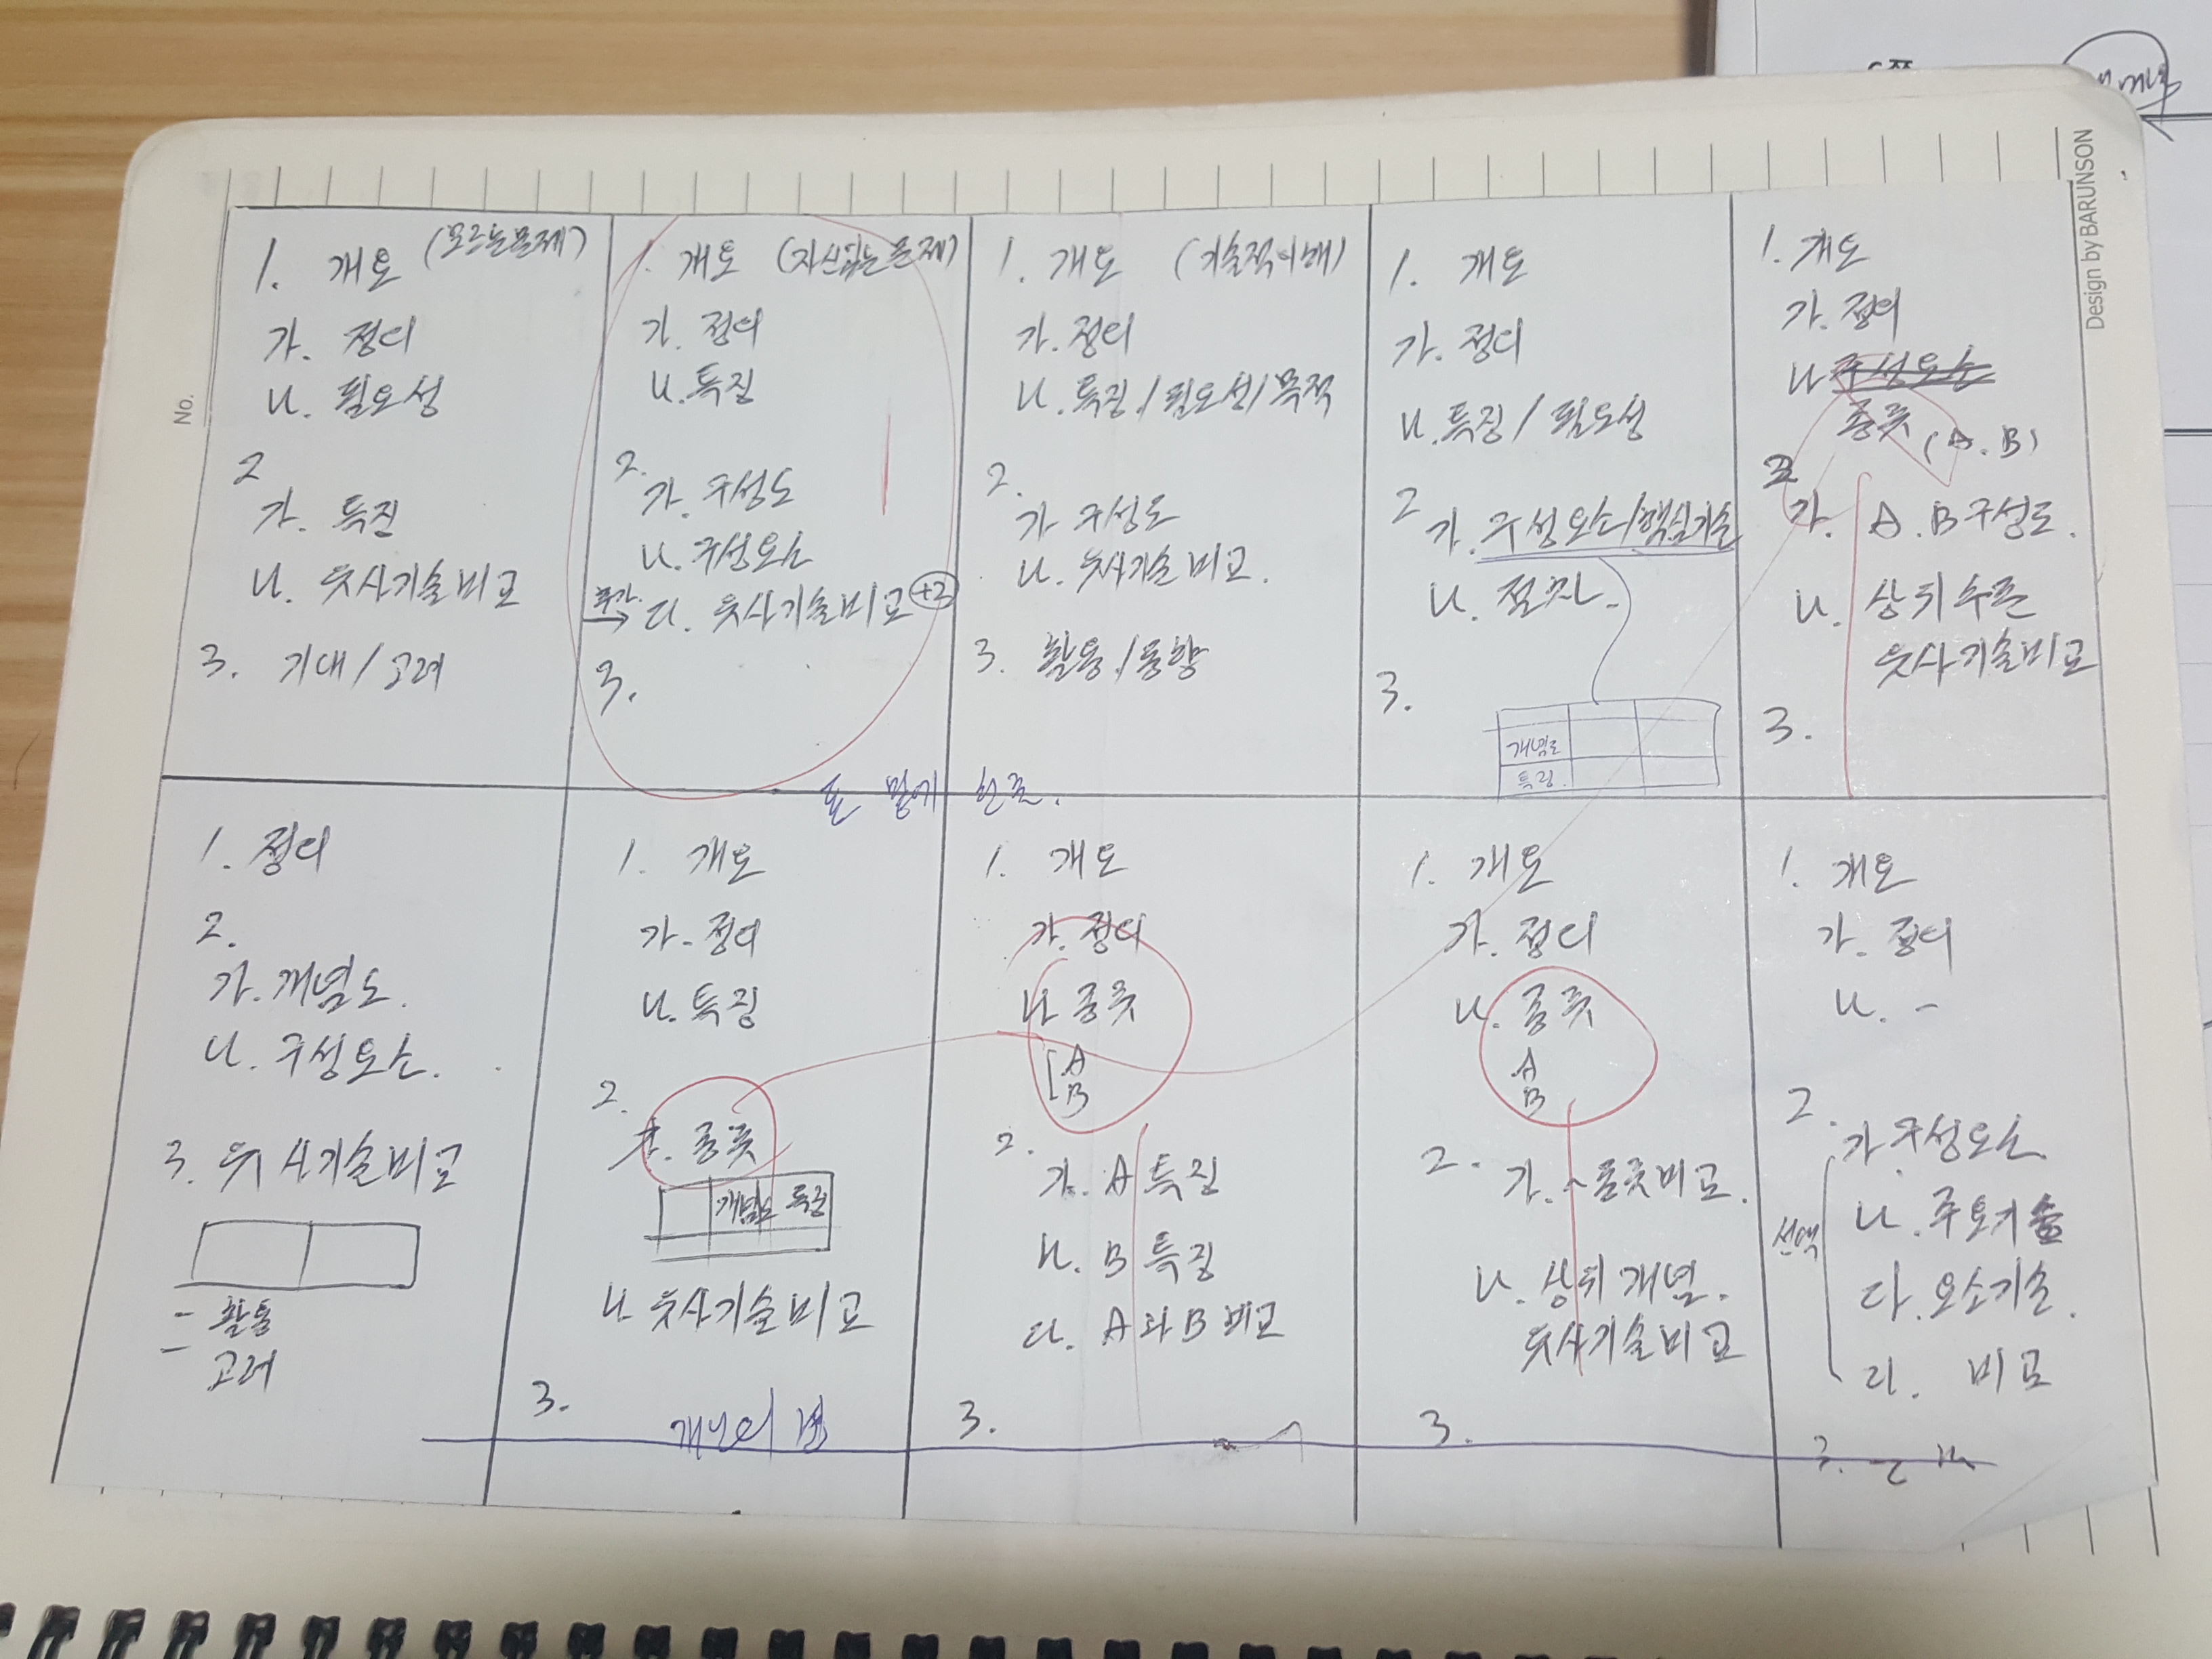 Design by BARUNSON
No.
1. 개요 (모르는문제)
가. 정의
나. 필요성
2
가. 특징
나. 유사기술비교
3. 기대/고려
1. 개요 (자신있는문제)
가. 정의
나. 특징
2.
가. 구성도
나. 구성요소
추가 → 다. 유사기술비교 +2
3.
1. 개요 (기술적이해)
가. 정의
나. 특징/필요성/목적
2.
가 구성도
나. 유사기술비교.
3. 활용/동향
1. 개요
가. 정의
나. 특징/필요성
2
가. 구성요소/핵심기술
나. 절차.
3.
개념도
특징.
1. 개요
가. 정의
나 구성요소
종류 (A.B)
2
가. A.B 구성도.
나. 상위수준
유사기술비교
3.
표 밑에 한줄.
1. 정의
2.
가. 개념도.
나. 구성요소.
3. 유사기술비교
- 활용
- 고려
1. 개요
가. 정의
나. 특징
2.
가. 종류
개념도 특징
나. 유사기술비교
3.
1. 개요
가. 정의
나 종류
A
B
2.
가. A 특징
나. B 특징
다. A와 B 비교
3.
1. 개요
가. 정의
나. 종류
A
B
2.
가. ~종류비교.
나. 상위개념.
유사기술비교
3.
1. 개요
가. 정의
나. -
2.
가 구성요소
선택
나. 주요기술
다. 요소기술.
라. 비교
3.